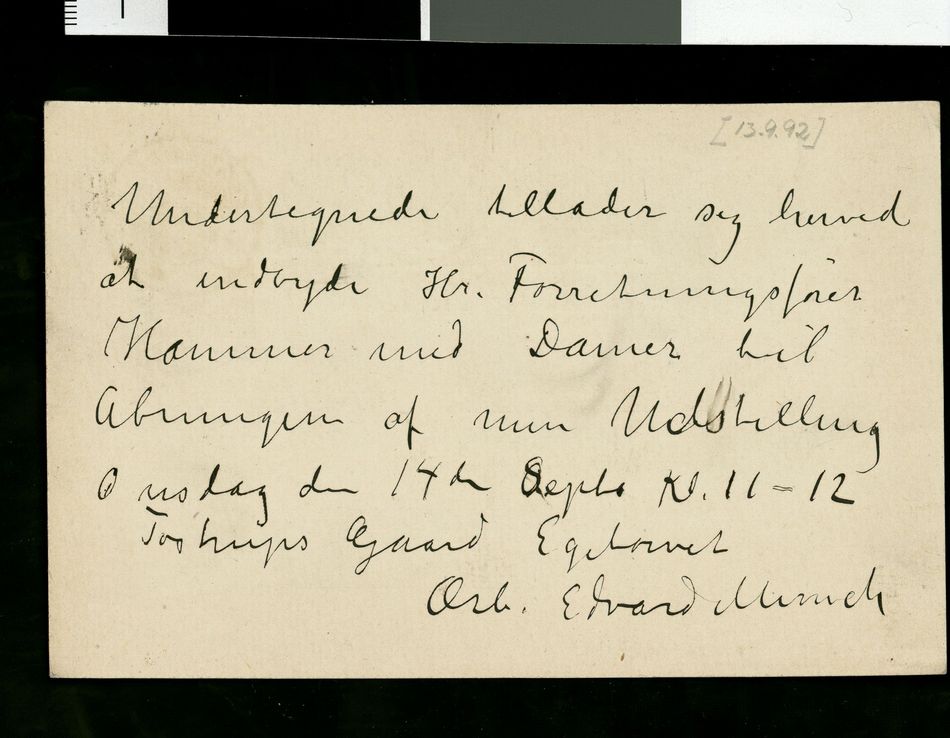 [13.9.92]
Undertegnede tillader sig herved
at indbyde Hr. Forretningsfører
Hammer med Damer til
Abningen af min Udstilling
Onsdag den 14de Septb Kl. 11-12
Tostrups Gaard Egetorvet
Ærb. Edvard Munch